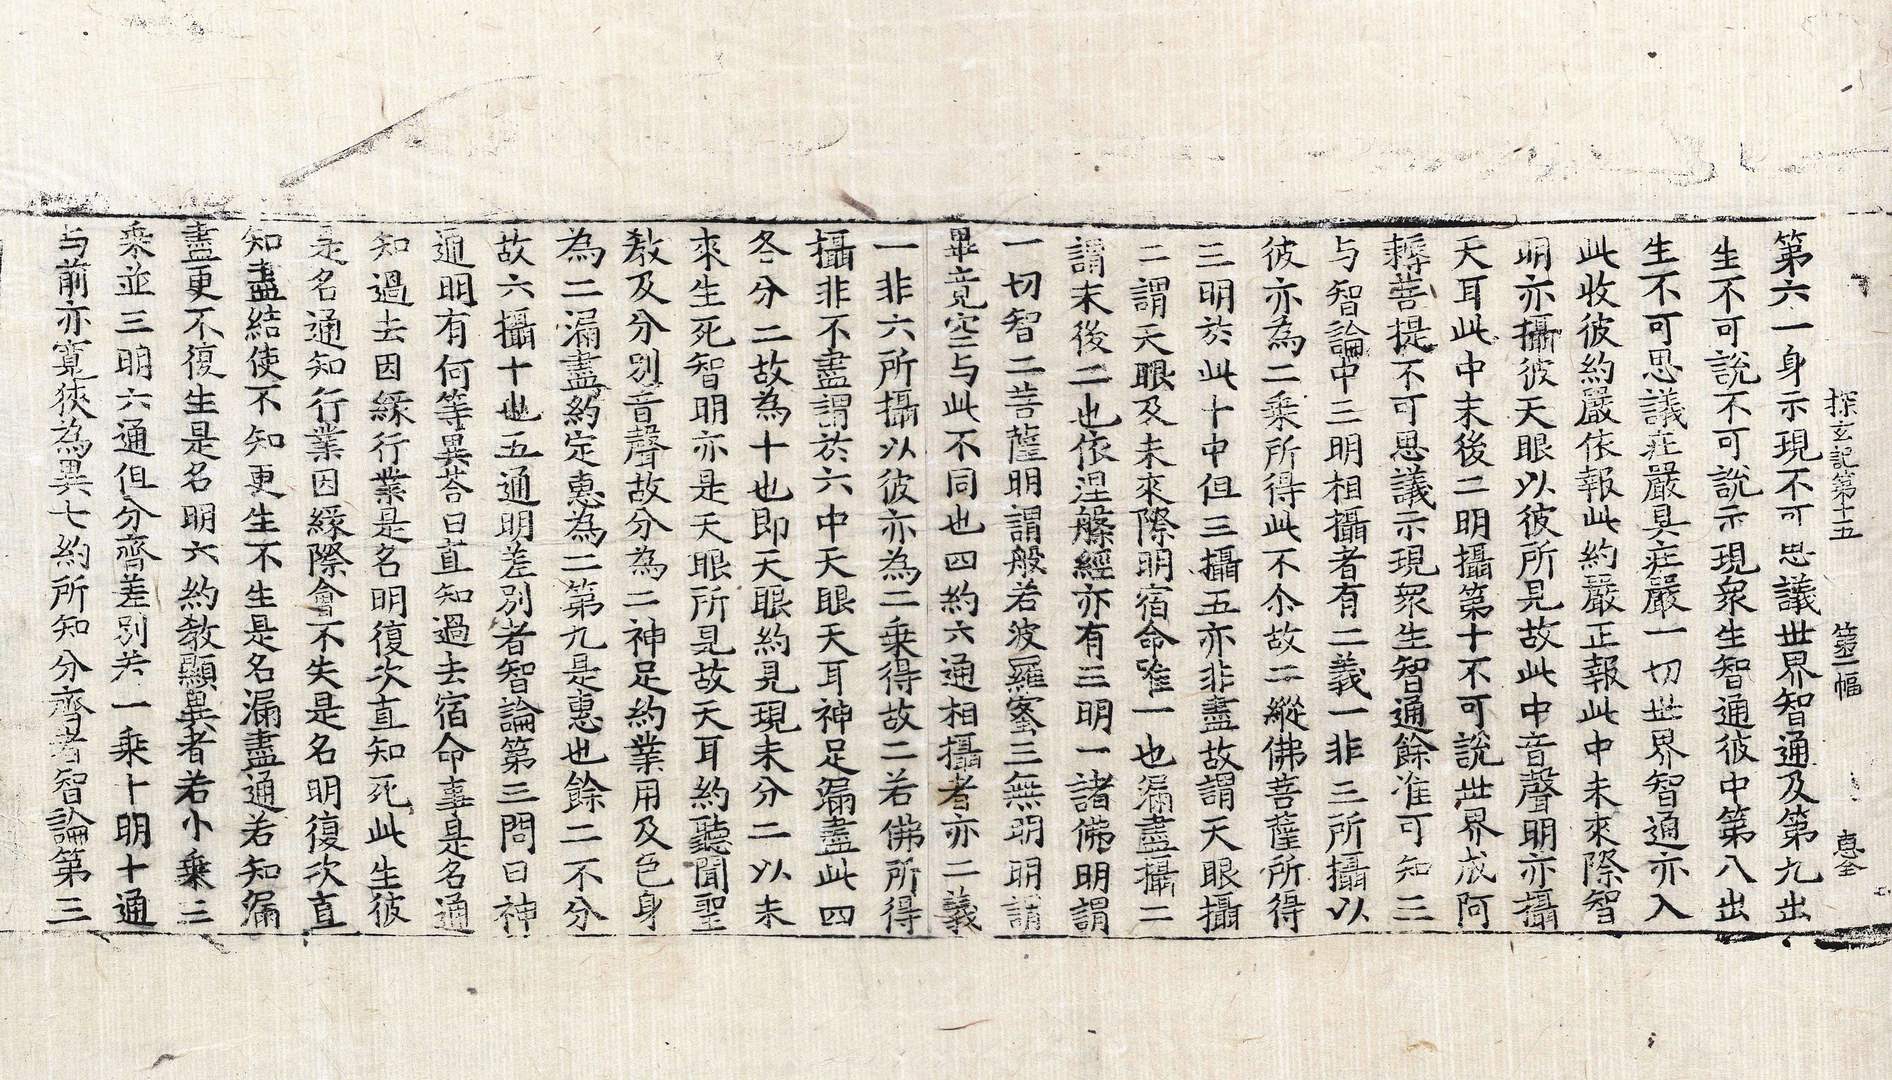 探玄記第十五　第二幅　惠全
第六一身示現不可思議世界智通及第九出
生不可說不可說示現衆生智通彼中第八出
生不可思議庄嚴具庄嚴一切世界智通亦入
此收彼約嚴依報此約嚴正報此中未來際智
明亦攝彼天眼以彼所見故此中音聲明亦攝
天耳此中末後二明攝第十不可說世界成阿
耨菩提不可思議示現衆生智通餘准可知三
与智論中三明相攝者有二義一非三所攝以
彼亦為二乘所得此不尒故二縱佛菩薩所得
三明於此十中但三攝五亦非盡故謂天眼攝
二謂天眼及未來際明宿命唯一也漏盡攝二
謂末後二也依涅槃經亦有三明一諸佛明謂
一切智二菩薩明謂般若波羅蜜三無明明謂
畢竟空与此不同也四約六通相攝者亦二義
一非六所攝以彼亦為二乘得故二若佛所得
攝非不盡謂於六中天眼天耳神足漏盡此四
各分二故為十也即天眼約見現未分二以未
來生死智明亦是天眼所見故天耳約聽聞聖
教及分別音聲故分為二神足約業用及色身
為二漏盡約定惠為二第九是惠也餘二不分
故六攝十也五通明差別者智論第三問曰神
通明有何等異荅曰直知過去宿命事是名通
知過去因緣行業是名明復次直知死此生彼
是名通知行業因緣際會不失是名明復次直
知盡結使不知更生不生是名漏盡通若知漏
盡更不復生是名明六約教顯異者若小乘三
乘並三明六通但分齊差別若一乘十明十通
与前亦寬狹為異七約所知分齊者智論第三